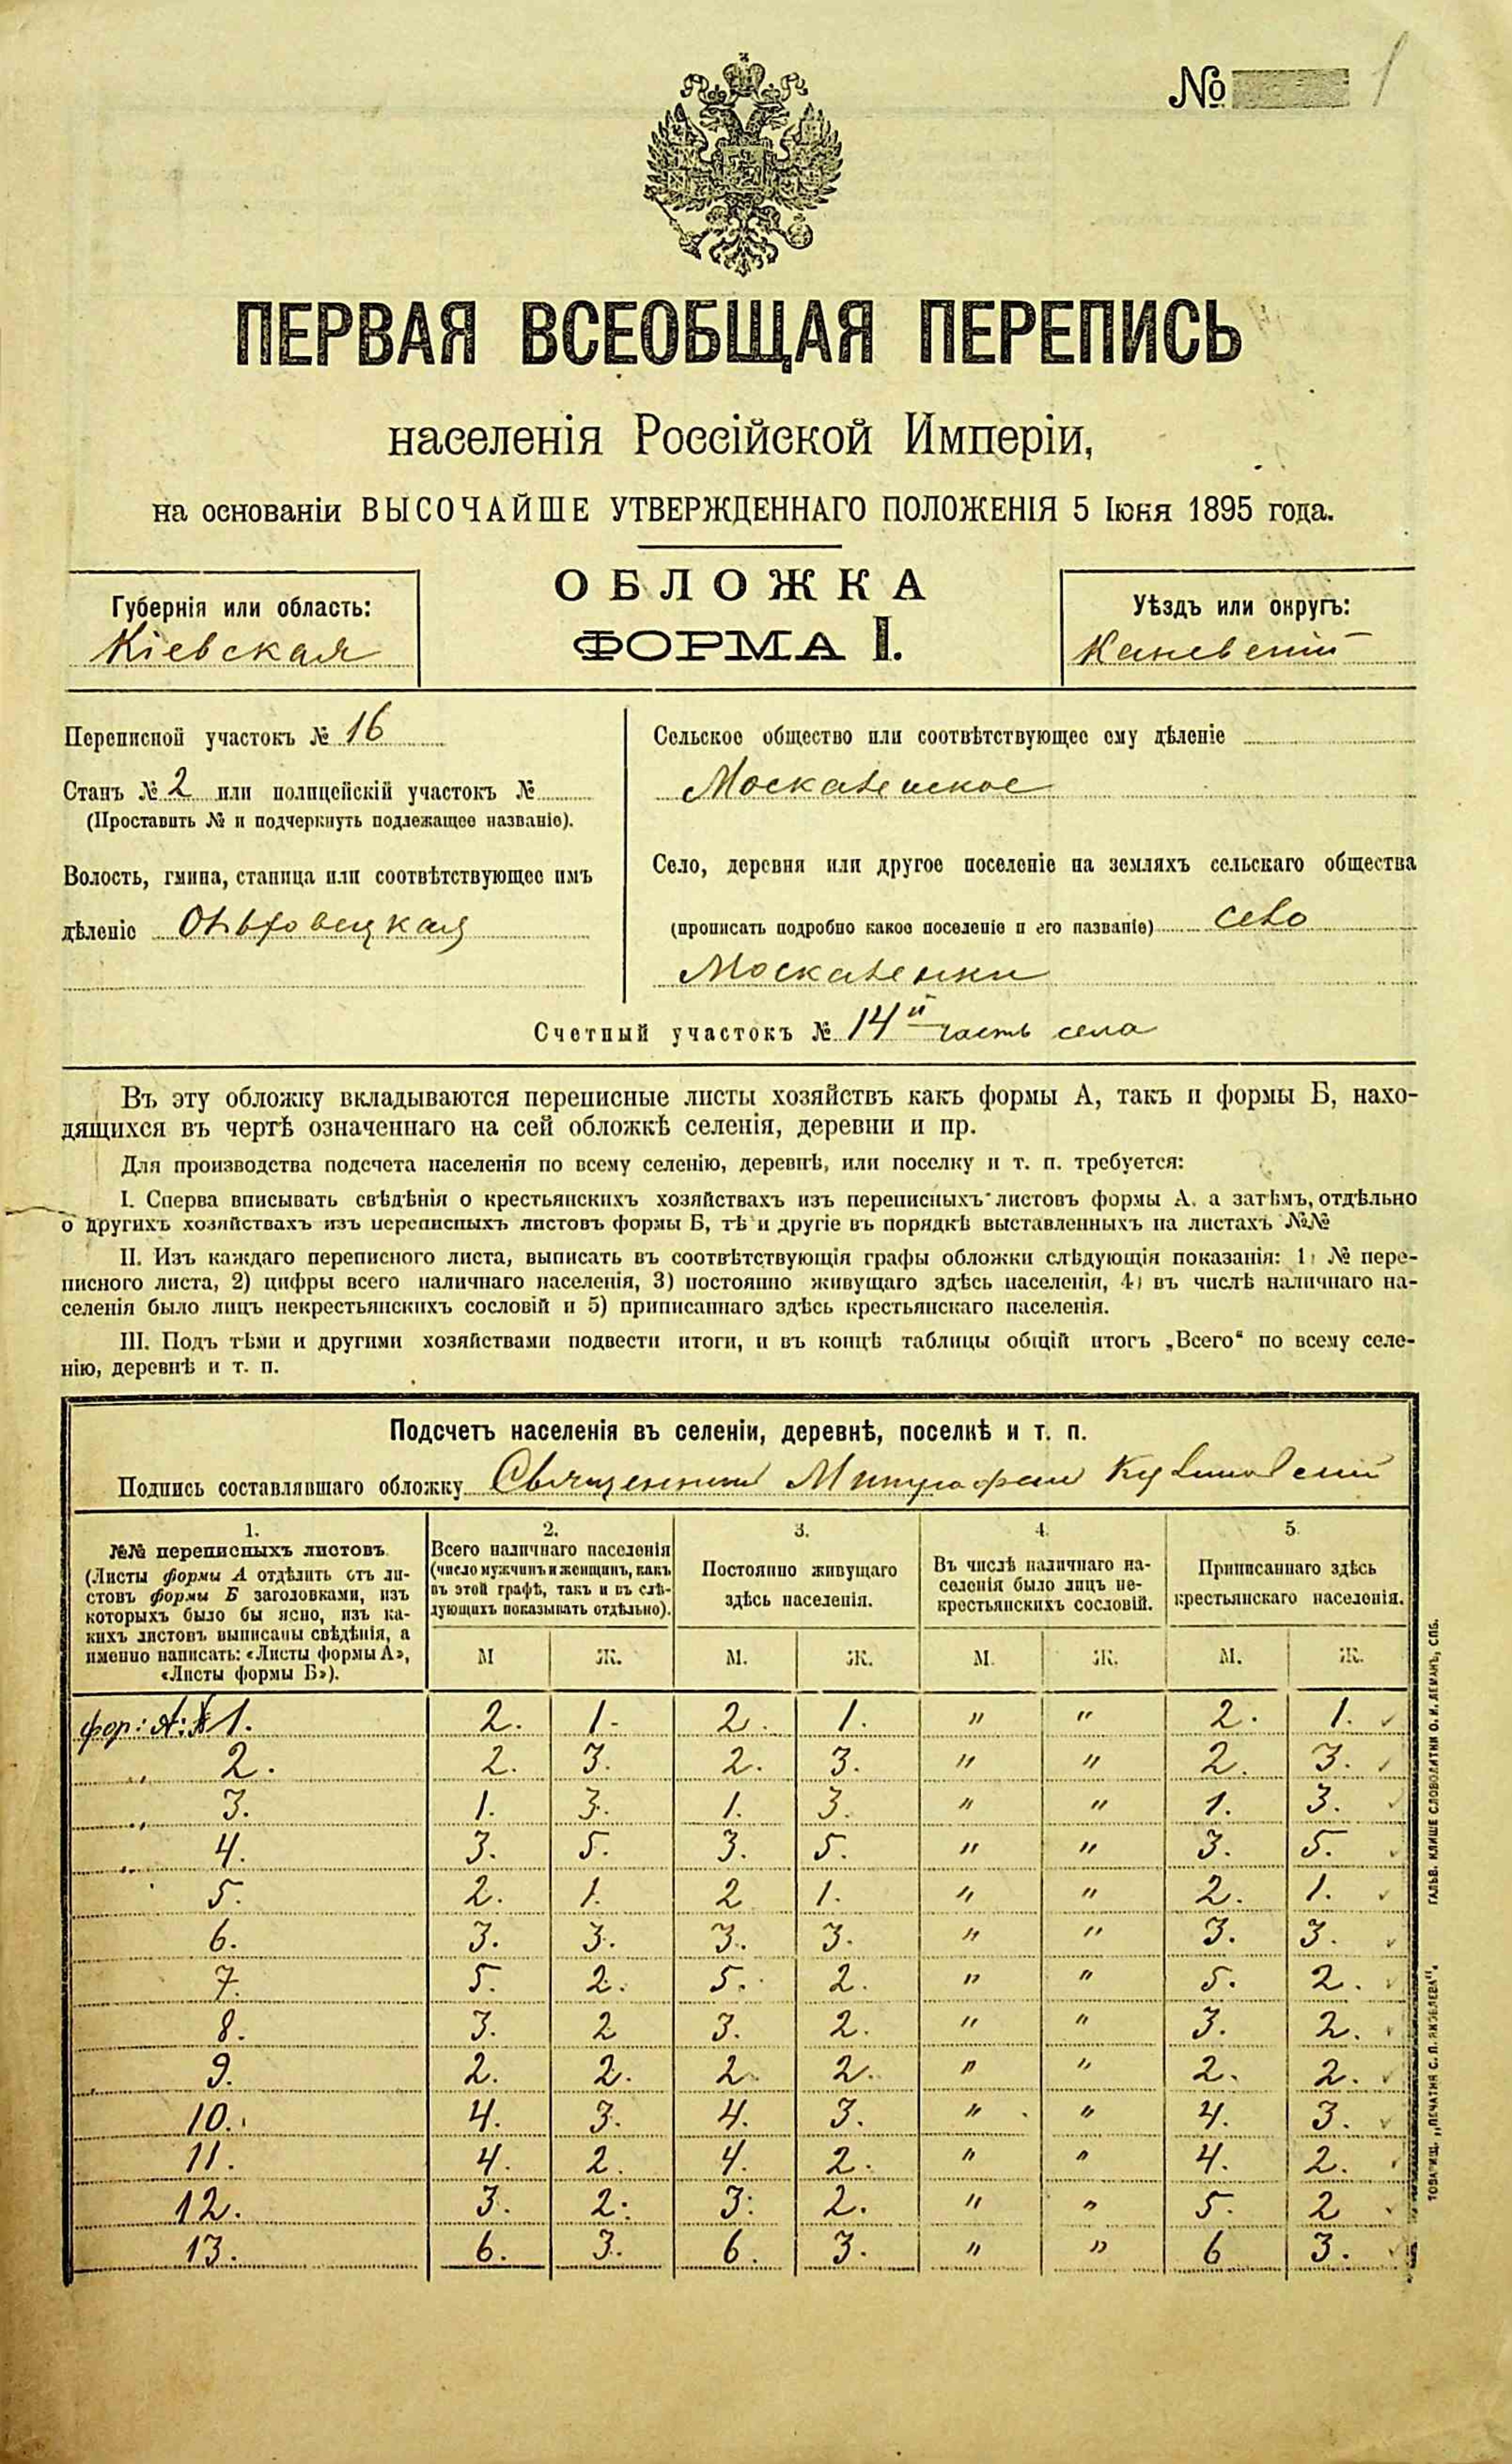 № 1
ПЕРВАЯ ВСЕОБЩАЯ ПЕРЕПИСЬ
населенія Россійской Имперіи,
на основаніи ВЫСОЧАЙШЕ УТВЕРЖДЕННАГО ПОЛОЖЕНІЯ 5 Іюня 1895 года.
ОБЛОЖКА
ФОРМА I.
Губернія или область:
Кіевская
Уѣздъ или округъ:
Каневскій
Переписной участокъ № 16
Станъ № 2 или полицейскій участокъ №
(Проставить № и подчеркнуть подлежащее названіе).
Волость, гмина, станица или соотвѣтствующее имъ
дѣленіе Ольховецкая
Сельское общество или соотвѣтствующее ему дѣленіе
Москаленское
Село, деревня или другое поселеніе на земляхъ сельскаго общества
(прописать подробно какое поселеніе и его названіе) село
Москаленки
Счетный участокъ № 14й часть села
Въ эту обложку вкладываются переписные листы хозяйствъ какъ формы А, такъ и формы Б, нахо-
дящихся въ чертѣ означеннаго на сей обложкѣ селенія, деревни и пр.
Для производства подсчета населенія по всему селенію, деревнѣ, или поселку и т. п. требуется:
I. Сперва вписывать свѣдѣнія о крестьянскихъ хозяйствахъ изъ переписныхъ листовъ формы А. а затѣмъ, отдѣльно
о другихъ хозяйствахъ изъ переписныхъ листовъ формы Б, тѣ и другіе въ порядкѣ выставленныхъ на листахъ №№
II. Изъ каждаго переписного листа, выписать въ соотвѣтствующія графы обложки слѣдующія показанія: 1) № пере-
писного листа, 2) цифры всего наличнаго населенія, 3) постоянно живущаго здѣсь населенія, 4) въ числѣ наличнаго на-
селенія было лицъ некрестьянскихъ сословій и 5) приписаннаго здѣсь крестьянскаго населенія.
III. Подъ тѣми и другими хозяйствами подвести итоги, и въ концѣ таблицы общій итогъ „Всего“ по всему селе-
нію, деревнѣ и т. п.
Подсчетъ населенія въ селеніи, деревнѣ, поселкѣ и т. п.
Подпись составлявшаго обложку Священникъ Митрофан
1.
№№ переписныхъ листовъ.
(Листы формы А отдѣлить отъ ли-
стовъ формы Б заголовками, изъ
которыхъ было бы ясно, изъ ка-
кихъ листовъ выписаны свѣдѣнія, а
именно написать: «Листы формы А»,
«Листы формы Б»).
2.
Всего наличнаго населенія
(число мужчинъ и женщинъ, какъ
въ этой графѣ, такъ и въ слѣ-
дующихъ показывать отдѣльно).
М Ж.
3.
Постоянно живущаго
здѣсь населенія.
М. Ж.
4.
Въ числѣ наличнаго на-
селенія было лицъ не-
крестьянскихъ сословій.
М. Ж.
5.
Приписаннаго здѣсь
крестьянскаго населенія.
М. Ж.
фор: А: № 1. 2. 1. 2. 1. " " 2. 1.
" 2. 2. 3. 2. 3. " " 2. 3.
" 3. 1. 3. 1. 3. " " 1. 3.
" 4. 3. 5. 3. 5. " " 3. 5.
5. 2. 1. 2 1. " " 2. 1.
6. 3. 3. 3. 3. " " 3. 3.
7. 5. 2. 5. 2. " " 5. 2.
8. 3. 2 3. 2. " " 3. 2.
9. 2. 2. 2. 2. " " 2. 2.
10. 4. 3. 4. 3. " " 4. 3.
11. 4. 2. 4. 2. " " 4. 2.
12. 3. 2. 3. 2. " " 5. 2
13. 6. 3. 6. 3. " " 6 3.
ТОВАРИЩ. „ПЕЧАТНЯ С. П. ЯКОВЛЕВА“. ГАЛЬВ. КЛИШЕ СЛОВОЛИТНИ О. И. ЛЕМАНЪ, СПБ.